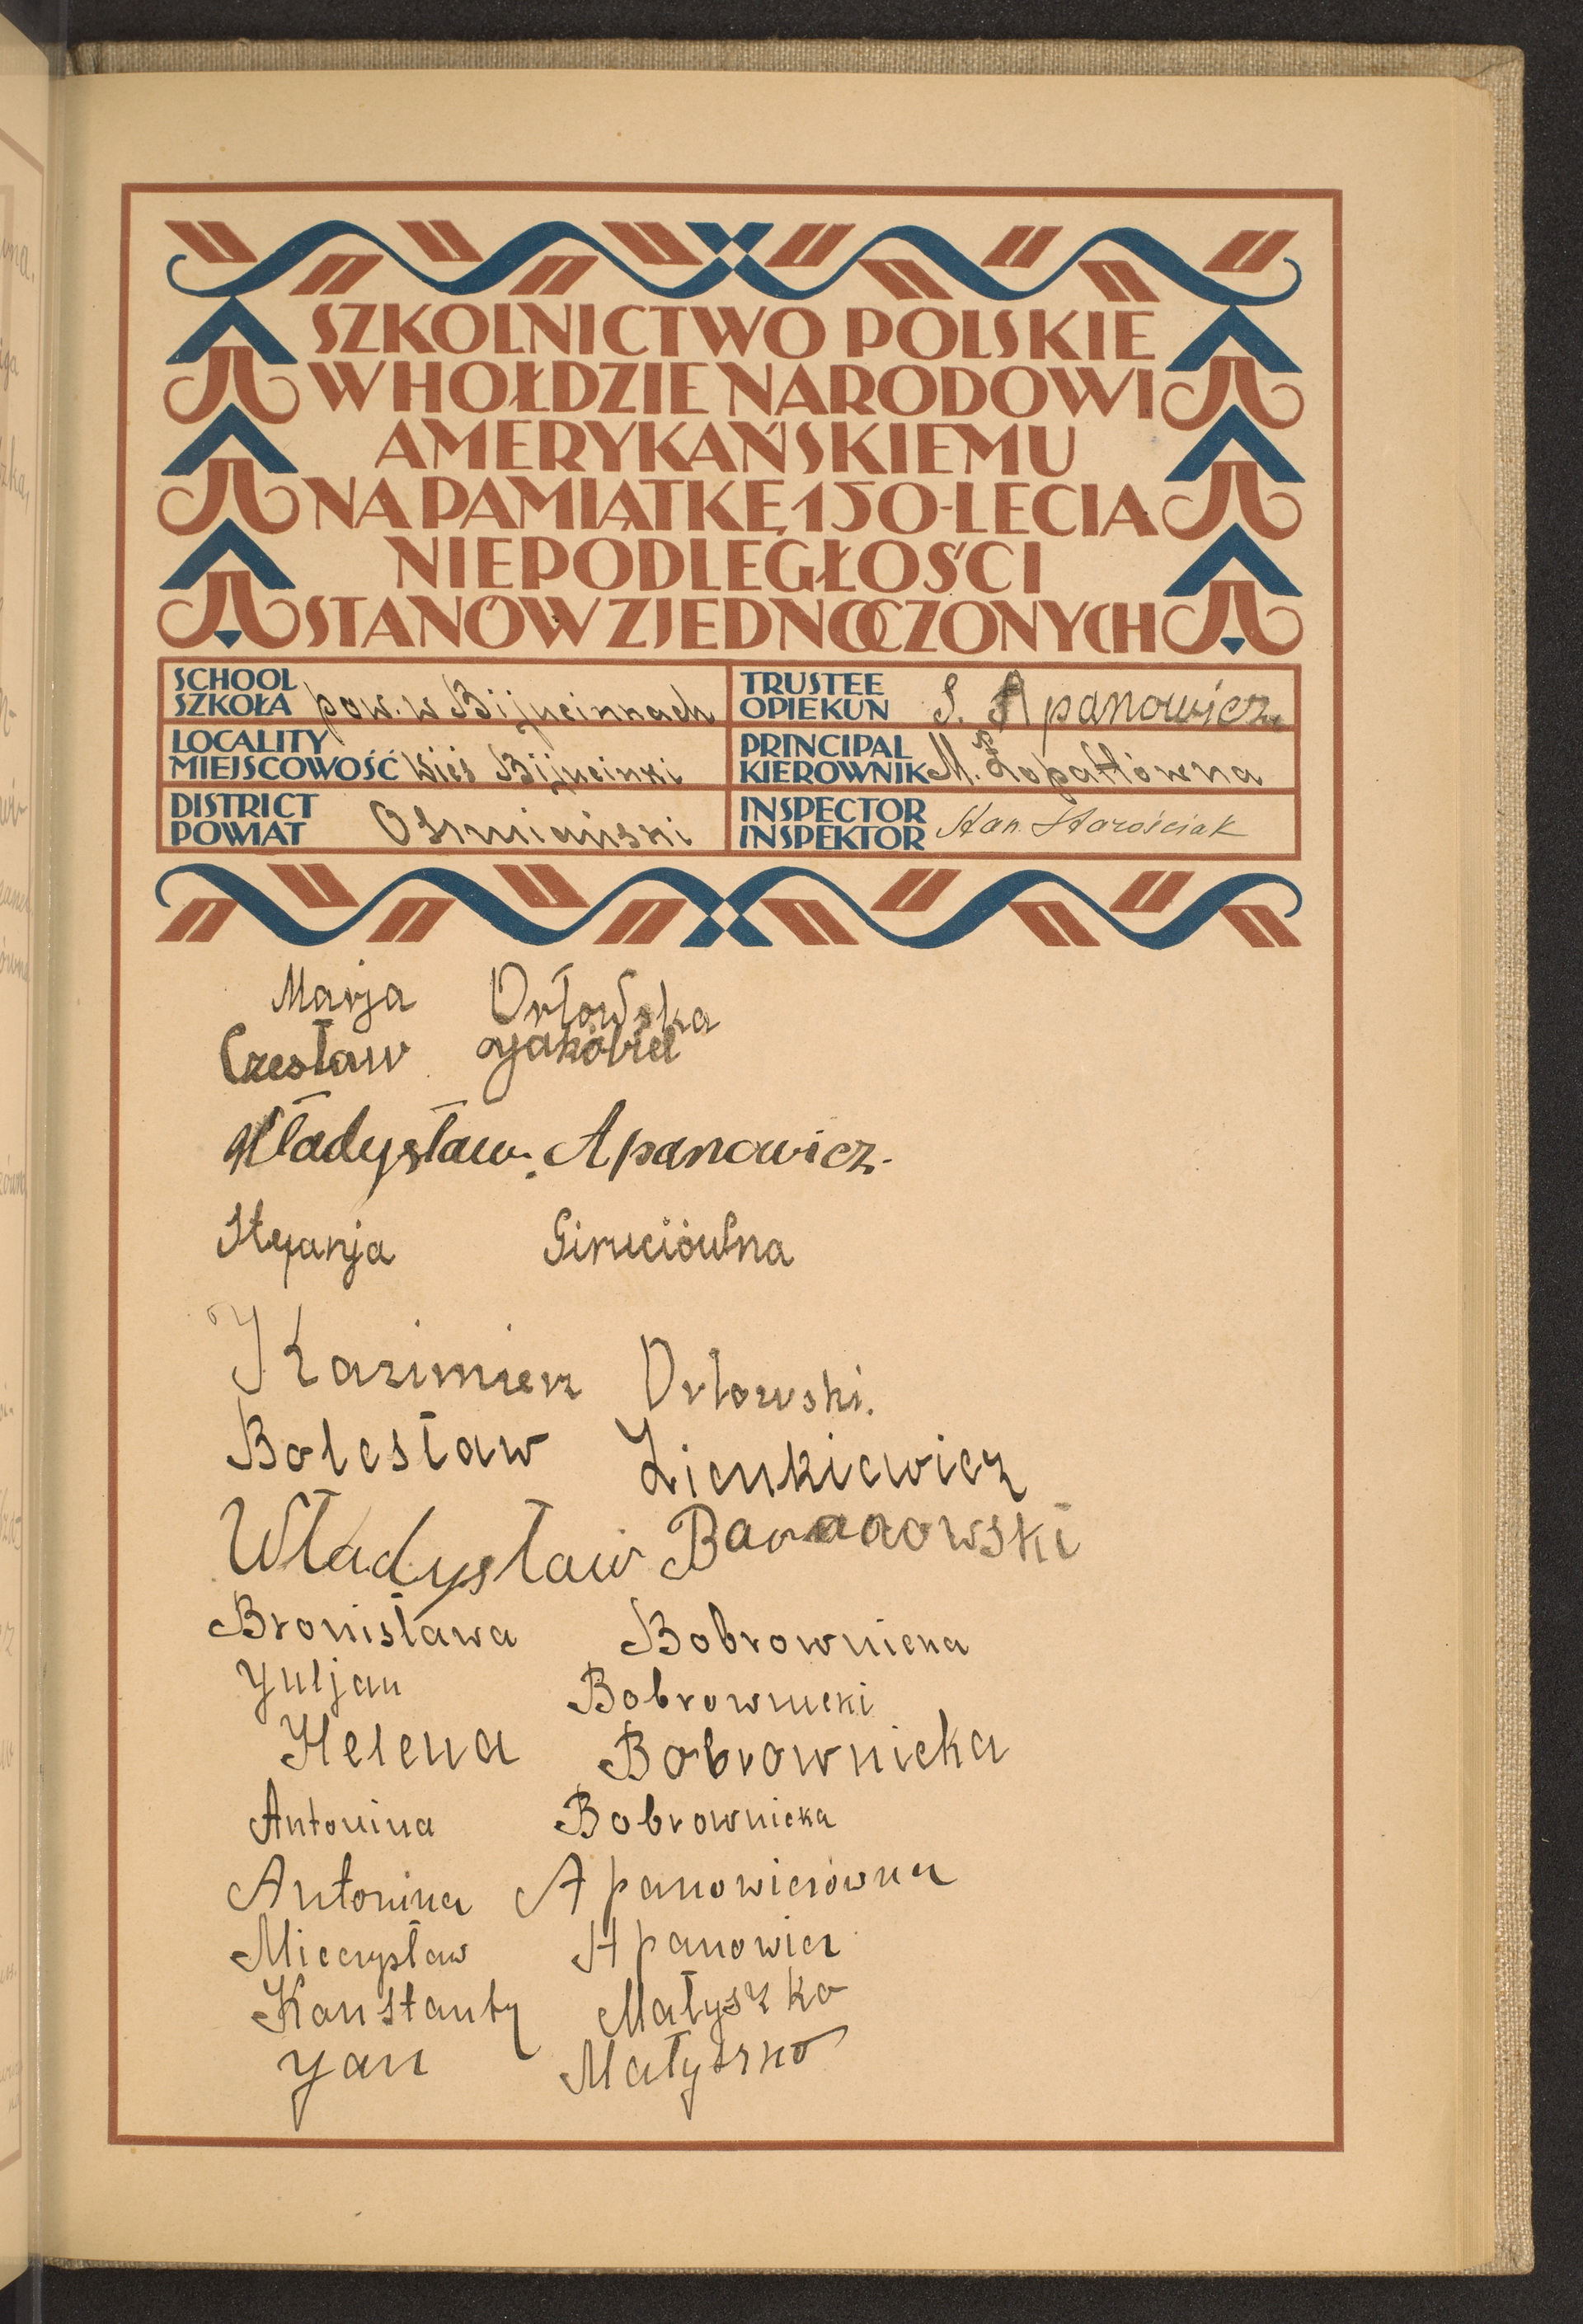 SZKOLNICTWO POLSKIE
W HOŁDZIE NARODOWI
AMERYKAŃSKIEMU
NA PAMIĄTKĘ 150-LECIA
NIEPODLEGŁOŚCI
STANÓW ZJEDNOCZONYCH
SCHOOL
SZKOŁA pow. w Bijucinkach
TRUSTEE
OPIEKUN S. Apanowicz
LOCALITY
MIEJSCOWOŚĆ Wieś Bijucinki
PRINCIPAL
KIEROWNIK M. Łopattówna
DISTRICT
POWIAT Oszmiański
INSPECTOR
INSPEKTOR Stan. Starościak
Marja Orłowska
Czesław Jakóbiel
Władysław Apanowicz.
Stefanja Giruciówna
Kazimierz Orłowski.
Bolesław Zienkiewicz
Władysław Baranowski
Bronisława Bobrowniena
Juljan Bobrownicki
Helena Bobrownicka
Antonina Bobrownicka
Antonina Apanowiczówna
Mieczysław Apanowicz
Konstanty Małyszko
Jan Małyszko